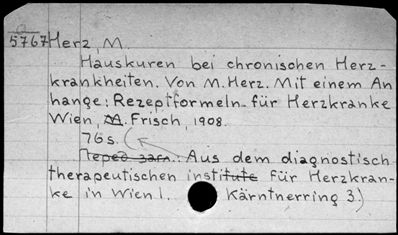 5767 Herz, M.
Hauskuren bei chronischen Herz-
krankheiten. Von M. Herz. Mit einem An
hange: Rezeptformeln für Herzkranke
Wien, M. Frisch, 1908.
76 s.
Перед загл.: Aus dem diagnostisch
therapeutischen institute für Herzkran-
ke in Wien I. Kärntnerring 3.)